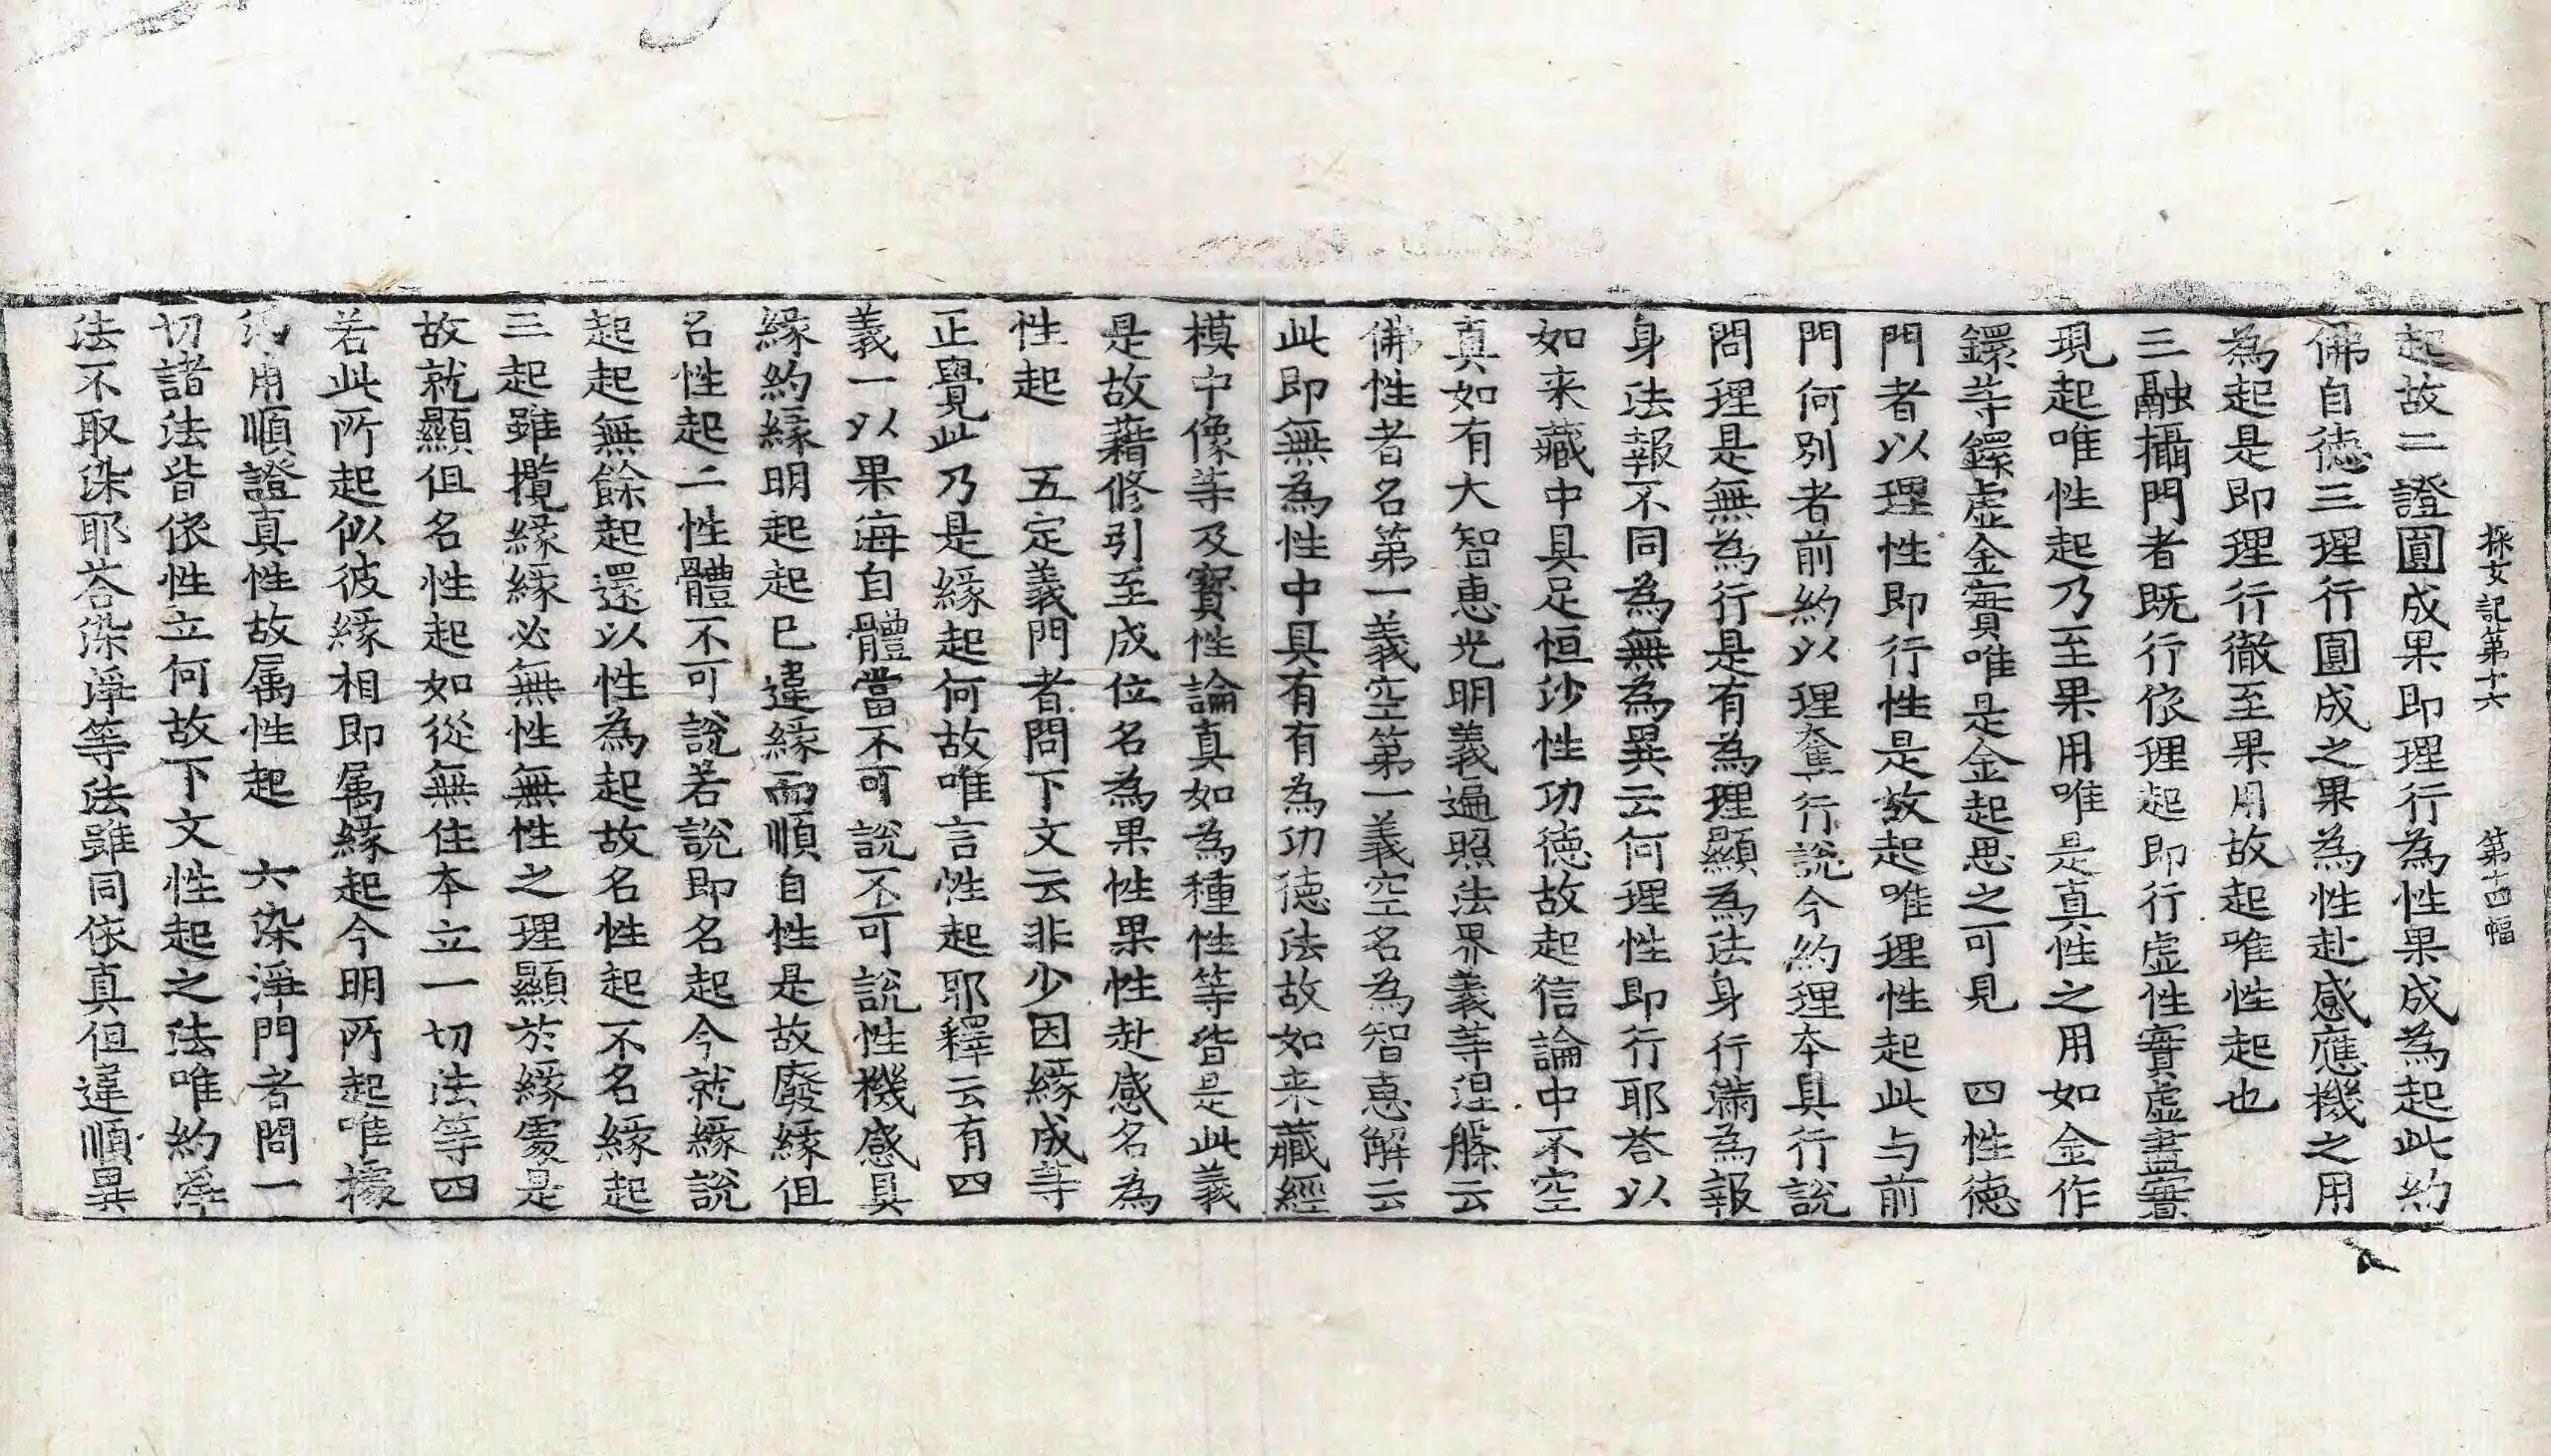 探玄記第十六　第十四幅
起故二證圓成果即理行為性果成為起此約
佛自德三理行圓成之果為性赴感應機之用
為起是即理行徹至果用故起唯性起也
三融攝門者既行依理起即行虛性實虛盡實
現起唯性起乃至果用唯是真性之用如金作
鐶等鐶虛金實唯是金起思之可見　四性德
門者以理性即行性是故起唯理性起此与前
門何別者前約以理奪行說今約理本具行說
問理是無為行是有為理顯為法身行滿為報
身法報不同為無為異云何理性即行耶荅以
如来藏中具足恒沙性功德故起信論中不空
真如有大智恵光明義遍照法界義等涅槃云
佛性者名第一義空第一義空名為智恵解云
此即無為性中具有有為功德法故如来藏經
模中像等及寳性論真如為種性等皆是此義
是故藉修引至成位名為果性果性赴感名為
性起　五定義門者問下文云非少因緣成等
正覺此乃是緣起何故唯言性起耶釋云有四
義一以果海自體當不可說不可說性機感具
緣約緣明起起已違緣而順自性是故廢緣但
名性起二性體不可說若說即名起今就緣說
起起無餘起還以性為起故名性起不名緣起
三起雖攬緣緣必無性無性之理顯於緣處是
故就顯但名性起如從無住本立一切法等四
若此所起似彼緣相即属緣起今明所起唯據
淨用順證真性故属性起　六染淨門者問一
切諸法皆依性立何故下文性起之法唯約淨
法不取染耶荅染淨等法雖同依真但違順異